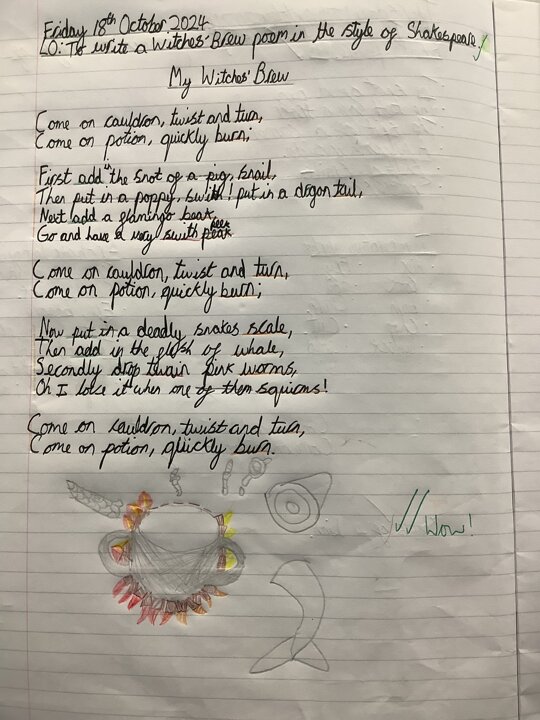 Friday 18th October 2024
LO: To write a Witches' Brew poem in the style of Shakespeare.
My Witches' Brew
Come on cauldron, twist and turn,
Come on potion, quickly burn;
First add the snot of a pig, snail,
Then put in a poppy, swith! put in a dragon tail,
Next add a flamingo beak,
Go and have a very swith peek
Come on cauldron, twist and turn,
Come on potion, quickly burn;
Now put in a deadly, snakes scale,
Then add in the flesh of whale,
Secondly drop twain pink worms,
Oh I love it when one of them squirms!
Come on cauldron, twist and turn,
Come on potion, quickly burn.
Wow!